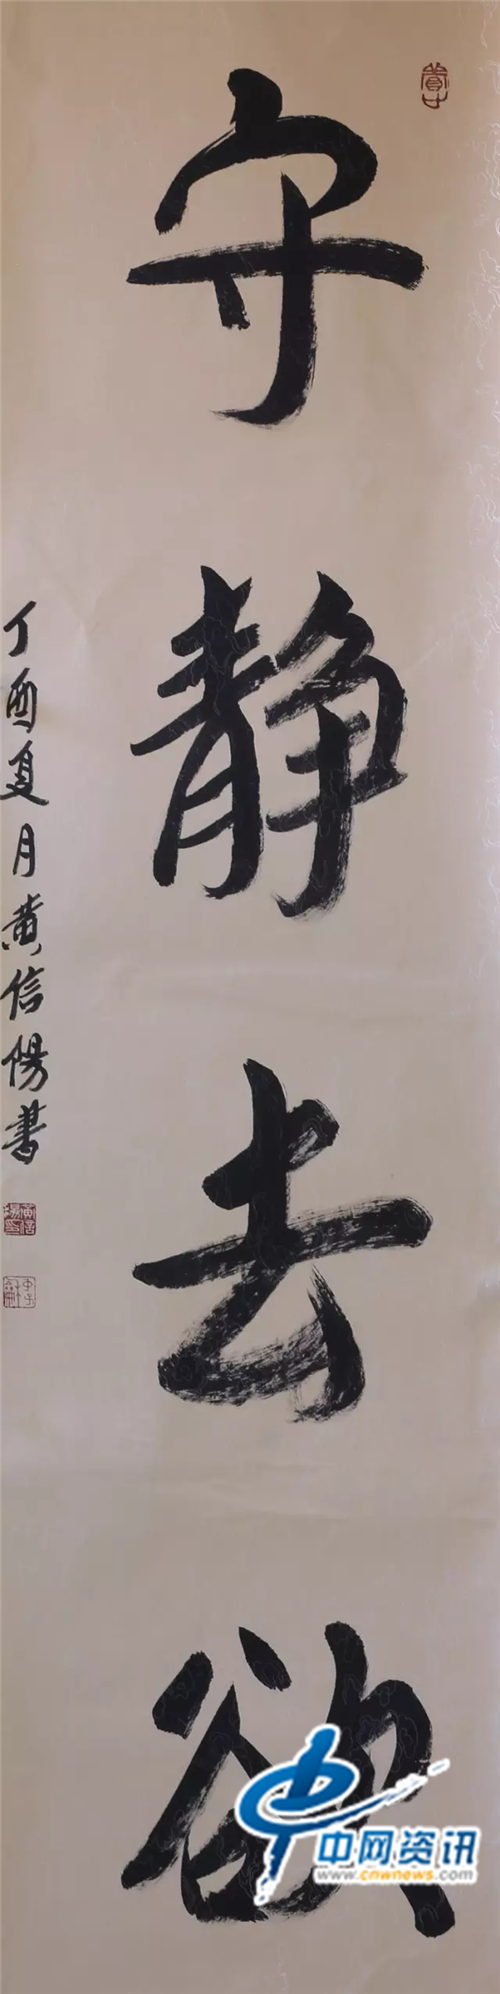 守静去欲
丁酉夏月黄信陽書
中网资讯
www.cnwnews.com